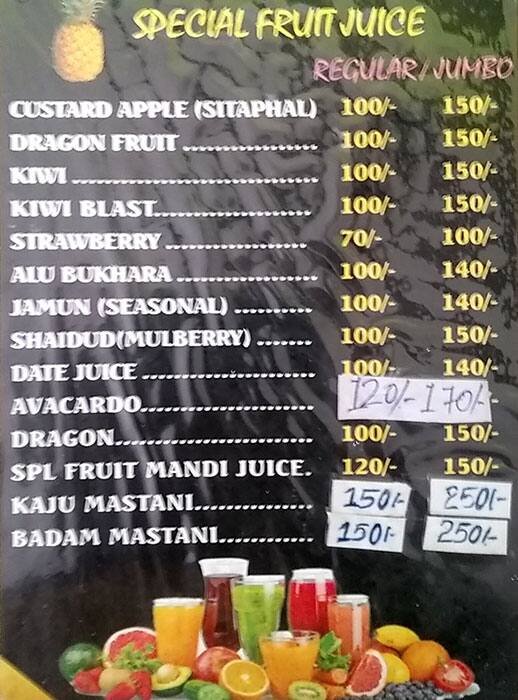 SPECIAL FRUIT JUICE
REGULAR / JUMBO
CUSTARD APPLE (SITAPHAL) 100/- 150/-
DRAGON FRUIT ................... 100/- 150/-
KIWI ................................... 100/- 150/-
KIWI BLAST...................... 100/- 150/-
STRAWBERRY .................... 70/- 100/-
ALU BUKHARA ................... 100/- 140/-
JAMUN (SEASONAL) ........... 100/- 140/-
SHAIDUD(MULBERRY) ........ 100/- 150/-
DATE JUICE ........................ 100/- 140/-
AVACARDO........................ 120/- 170/-
DRAGON............................ 100/- 150/-
SPL FRUIT MANDI JUICE. 120/- 150/-
KAJU MASTANI................ 150/- 250/-
BADAM MASTANI............. 150/- 250/-